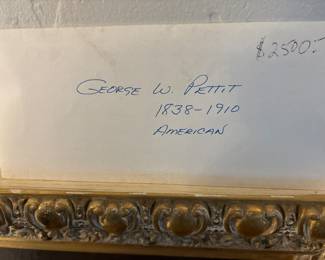 $2500.-
George W. Pettit
1838-1910
American